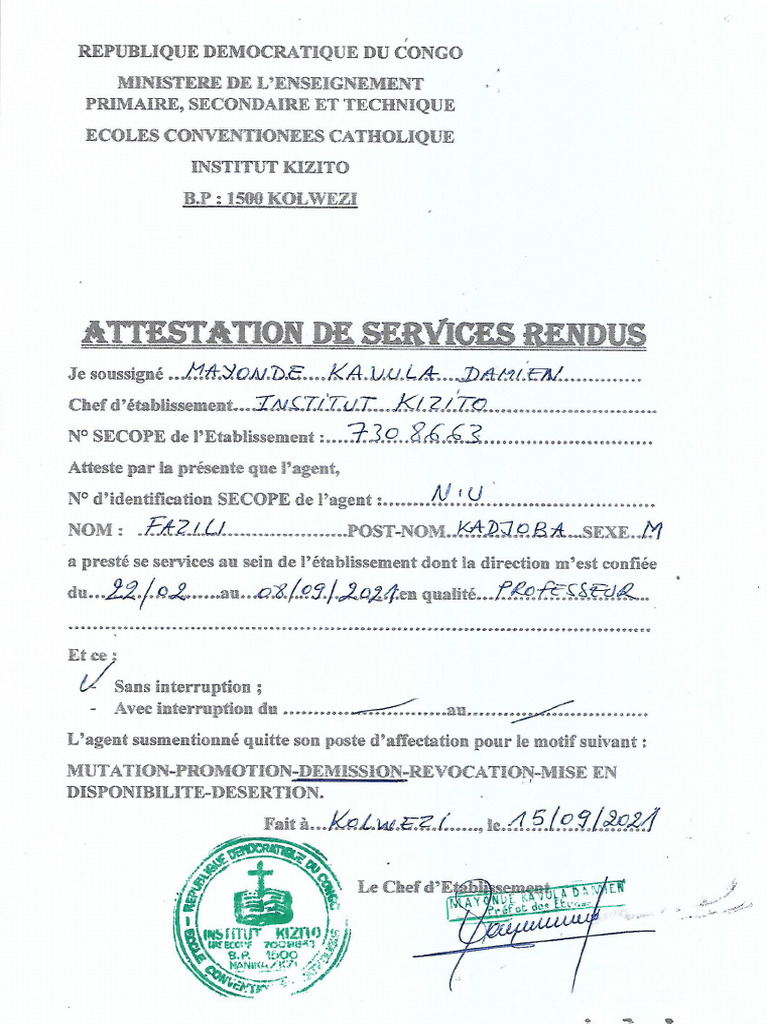 REPUBLIQUE DEMOCRATIQUE DU CONGO
MINISTERE DE L'ENSEIGNEMENT
PRIMAIRE, SECONDAIRE ET TECHNIQUE
ECOLES CONVENTIONEES CATHOLIQUE
INSTITUT KIZITO
B.P : 1500 KOLWEZI
ATTESTATION DE SERVICES RENDUS
Je soussigné ...MAYONDE KAVULA DAMIEN..............
Chef d'établissement....INSTITUT KIZITO..............................
N° SECOPE de l'Etablissement :....7308663..............................
Atteste par la présente que l'agent,
N° d'identification SECOPE de l'agent :........N.U..............................
NOM : .FAZILI......................POST-NOM..KADJOBA...SEXE..M
a presté se services au sein de l'établissement dont la direction m'est confiée
du...22/02......au...08/09/2021.en qualité....PROFESSEUR..
....................................................................................................
Et ce :
✓- Sans interruption ;
- Avec interruption du ..............................au..............................
L'agent susmentionné quitte son poste d'affectation pour le motif suivant :
MUTATION-PROMOTION-DEMISSION-REVOCATION-MISE EN
DISPONIBILITE-DESERTION.
Fait à...KOLWEZI......, le..15/09/2021
Le Chef d'Etablissement
MAYONDE KAVULA DAMIEN
Préfet des Etudes
REPUBLIQUE DEMOCRATIQUE DU CONGO
INSTITUT KIZITO
B.P. 1500
ECOLE